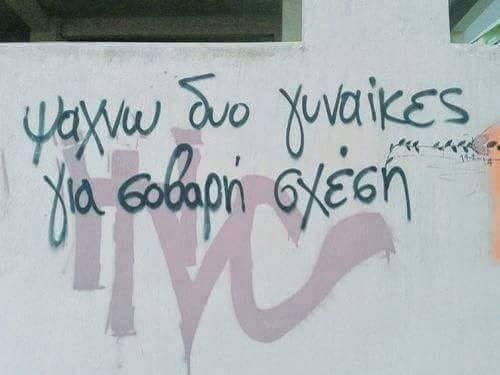 ψαχνω δυο γυναίκες
για σοβαρή σχέση